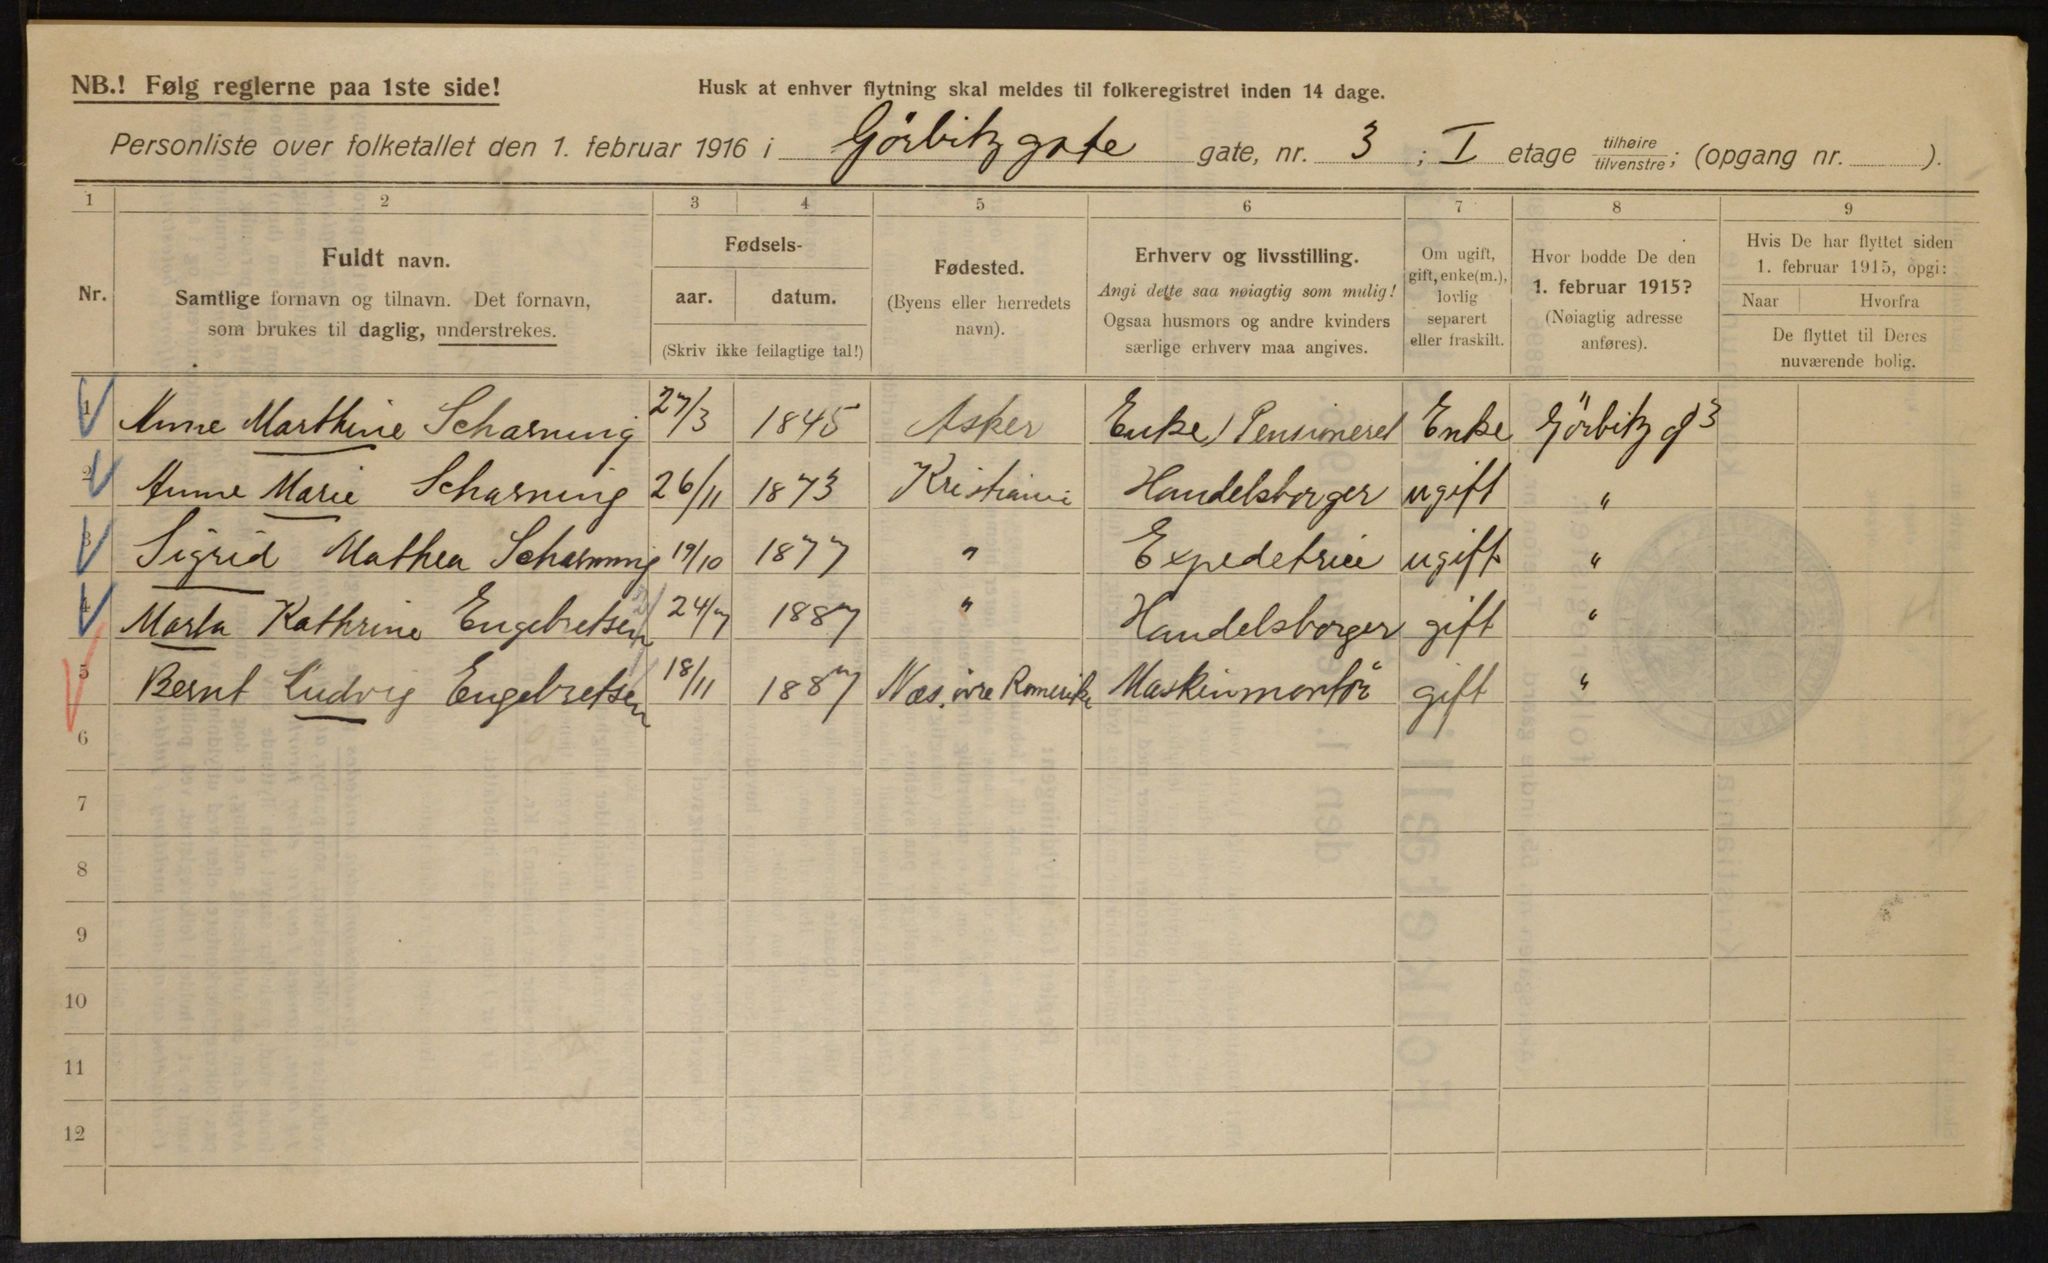 NB.! Følg reglerne paa 1ste side!
Husk at enhver flytning skal meldes til folkeregistret inden 14 dage.
Personliste over folketallet den 1. februar 1916 i Görbitzgate gate, nr. 3 ; I etage tilhøire tilvenstre ; (opgang nr. ).
1 2 3 4 5 6 7 8 9
Nr.
Fuldt navn.
Samtlige fornavn og tilnavn. Det fornavn,
som brukes til daglig, understrekes.
Fødsels-
aar. datum.
(Skriv ikke feilagtige tal!)
Fødested.
(Byens eller herredets
navn).
Erhverv og livsstilling.
Angi dette saa nøiagtig som mulig!
Ogsaa husmors og andre kvinders
særlige erhverv maa angives.
Om ugift,
gift, enke(m.),
lovlig
separert
eller fraskilt.
Hvor bodde De den
1. februar 1915?
(Nøiagtig adresse
anføres).
Hvis De har flyttet siden
1. februar 1915, opgi:
Naar Hvorfra
De flyttet til Deres
nuværende bolig.
1 Anne Marthine Scharning 27/3 1845 Asker Enke, Pensioneret Enke Görbitz g 3
2 Anne Marie Scharning 26/11 1873 Kristiania Handelsborger ugift "
3 Sigrid Mathea Scharning 19/10 1877 " Expedetrice ugift "
4 Marta Kathrine Engebretsen 24/7 1887 " Handelsborger gift "
5 Bernt Ludvig Engebretsen 18/11 1887 Næs, övre Romerike Maskinmontör gift "
6
7
8
9
10
11
12